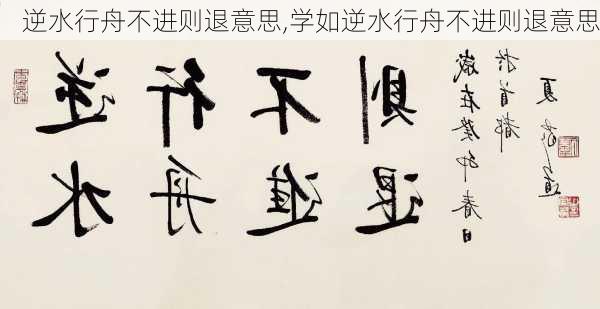 逆水行舟不进则退意思,学如逆水行舟不进则退意思
逆水
行舟
不進
則退
歲在癸卯春日
於首都
夏